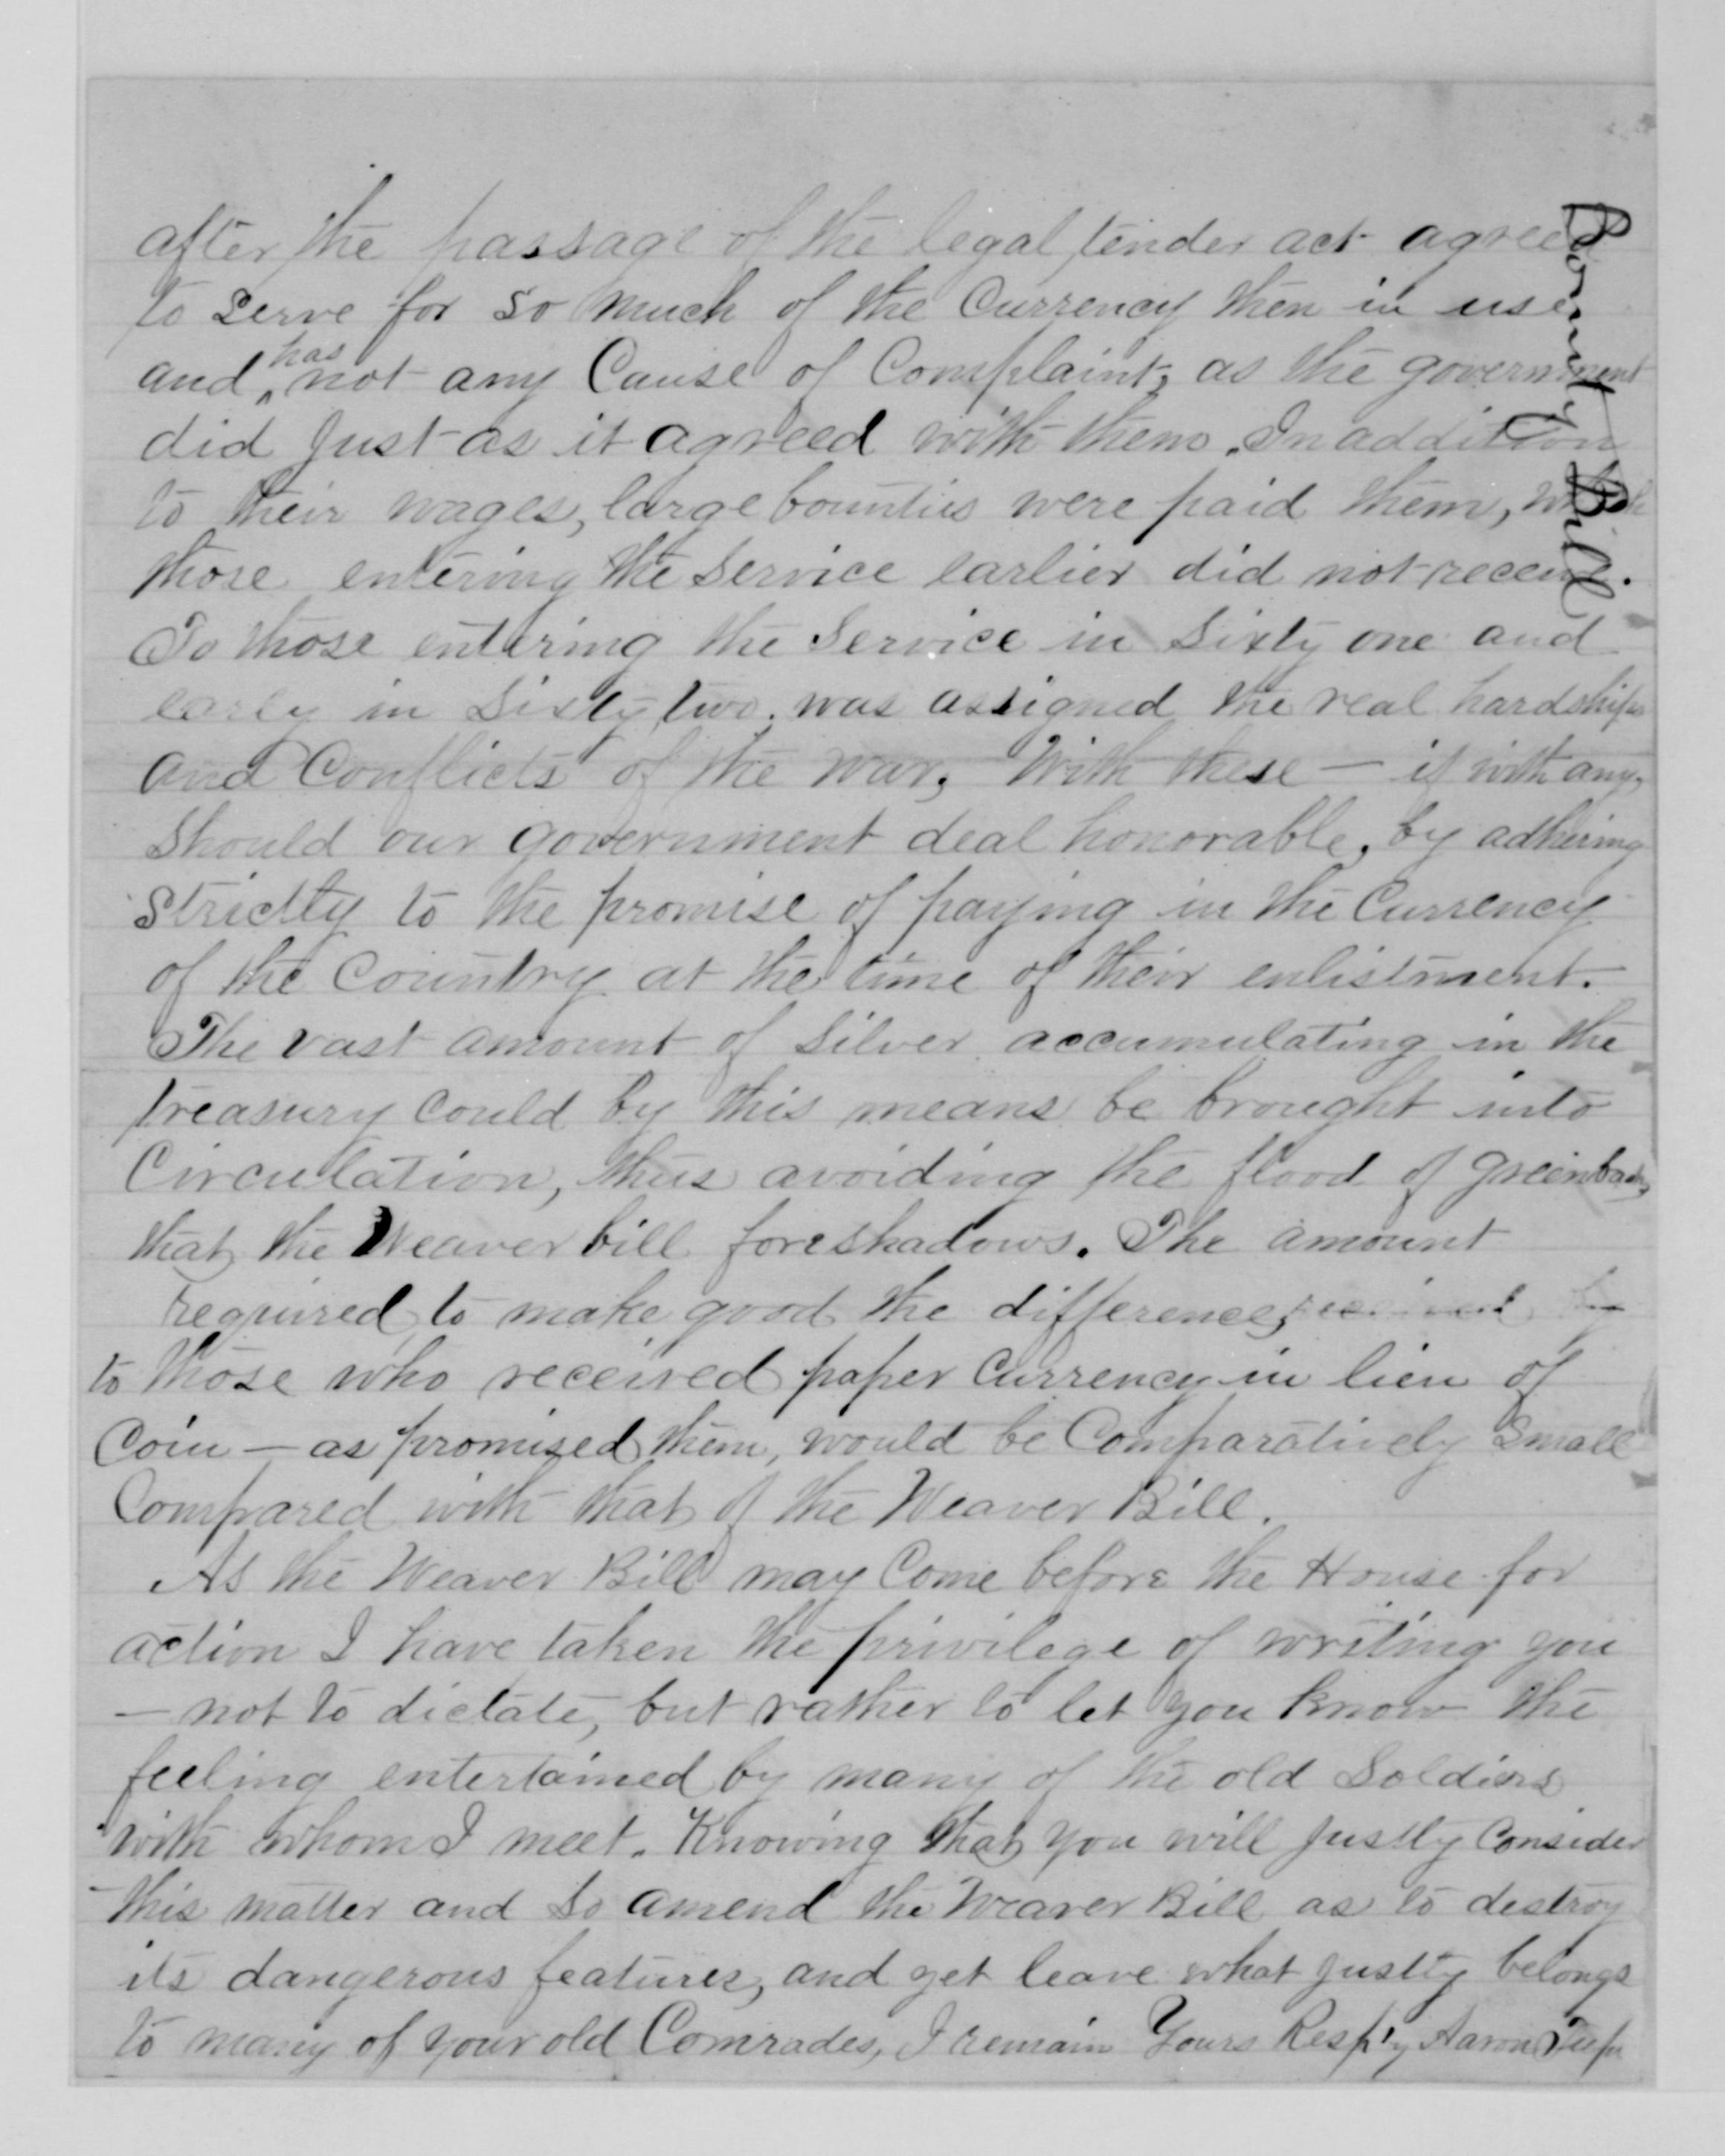 after the passage of the legal tender act agreed
to serve for so much of the Currency then in use
and has not any Cause of Complaint, as the government
did just as it agreed with them. In addition
to their wages, large bounties were paid them, which
those entering the service earlier did not receive.
To those entering the service in sixty one and
early in sixty two, was assigned the real hardships
and Conflicts of the war, With these — if with any,
should our government deal honorable, by adhering
strictly to the promise of paying in the Currency
of the Country at the time of their enlistment.
The vast amount of silver accumulating in the
treasury could by this means be brought into
Circulation, thus avoiding the flood of greenbacks
that the Weaver bill foreshadows. The amount
required to make good the difference,
to those who received paper currency in lieu of
Coin — as promised them, would be Comparatively small
Compared with that of the Weaver Bill.
As the Weaver Bill may Come before the House for
action I have taken the privilege of writing you
— not to dictate, but rather to let you know the
feeling entertained by many of the old soldiers
with whom I meet. Knowing that you will justly Consider
this matter and so amend the Weaver Bill as to destroy
its dangerous features, and yet leave what justly belongs
to many of your old Comrades, I remain Yours Resp'y Aaron
Bounty Bill